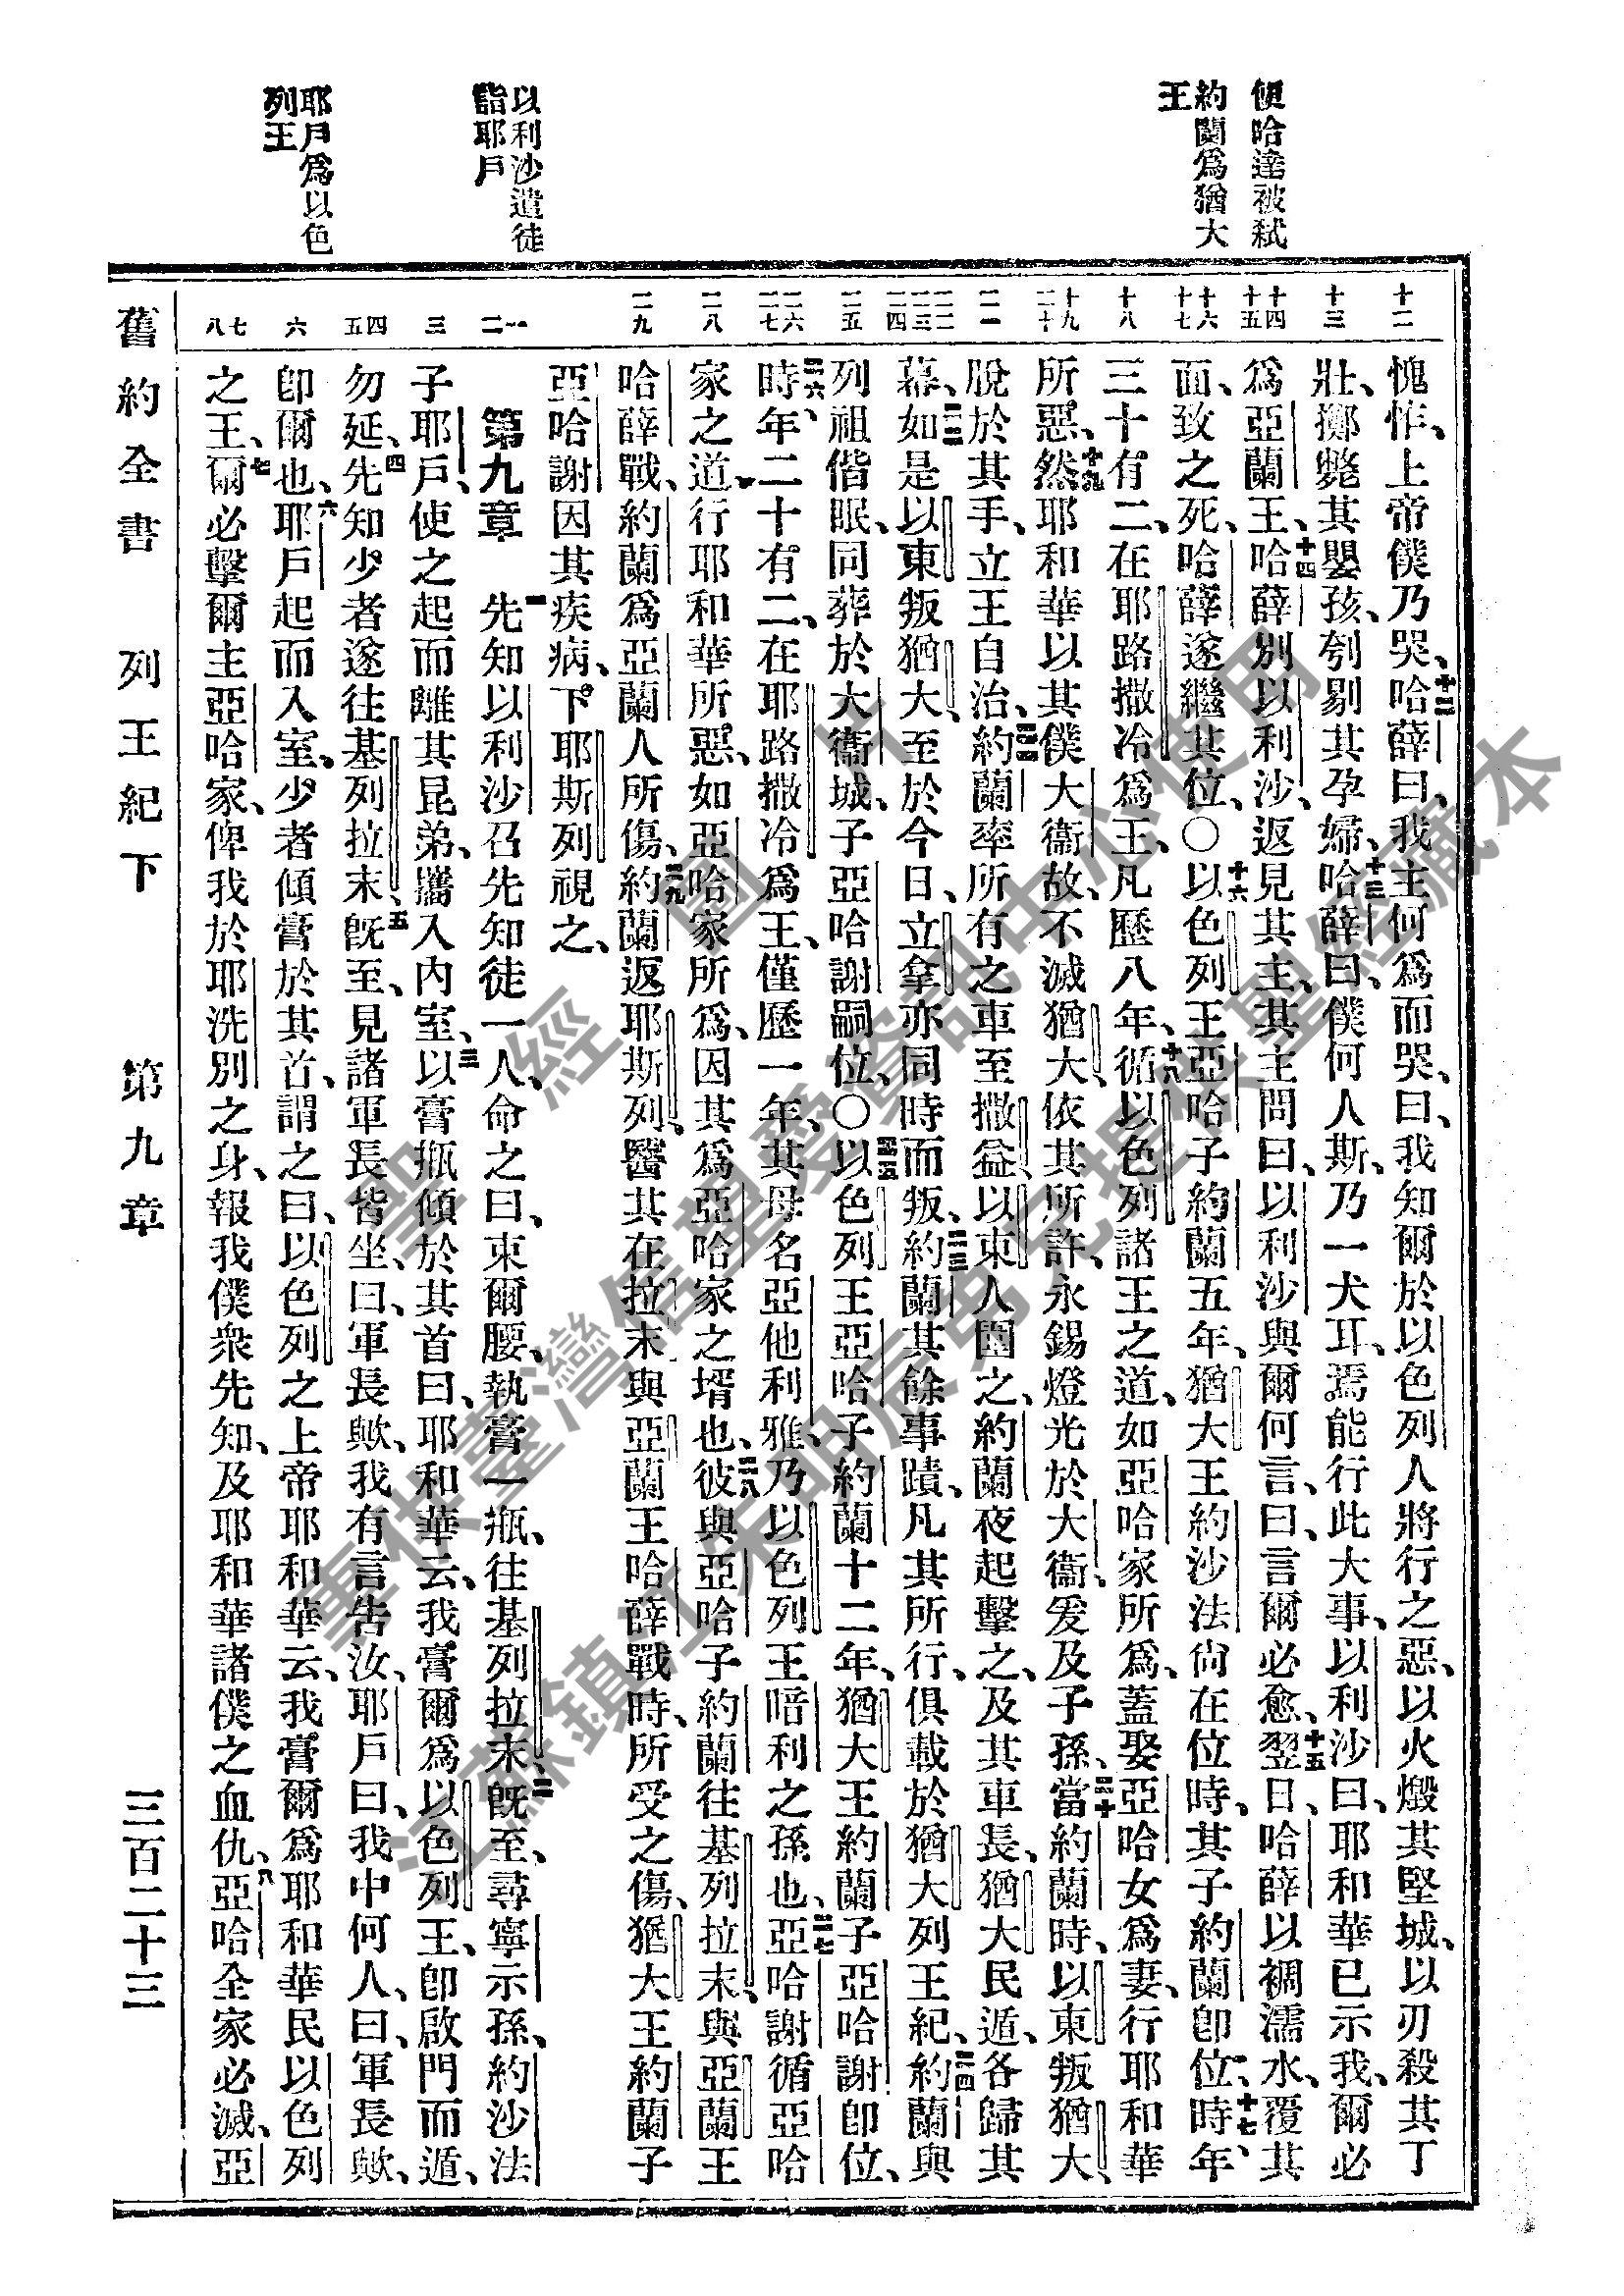 便哈達被弒
約蘭爲猶大
王
以利沙遣徒
詣耶戶
耶戶爲以色
列王
十二
十三
十四 十五
十六 十七
十八
十九 二十
二一
二二 二三 二四
二五
二六 二七
二八
二九
一 二
三
四 五
六
七 八
愧怍、上帝僕乃哭、十二哈薛曰、我主何爲而哭、曰、我知爾於以色列人將行之惡、以火燬其堅城、以刃殺其丁
壯、擲斃其嬰孩、刳剔其孕婦、十三哈薛曰、僕何人斯、乃一犬耳、焉能行此大事、以利沙曰、耶和華已示我、爾必
爲亞蘭王、十四哈薛別以利沙、返見其主、其主問曰、以利沙與爾何言、曰、言爾必愈、十五翌日、哈薛以裯濡水、覆其
面、致之死、哈薛遂繼其位、○十六以色列王亞哈子約蘭五年、猶大王約沙法尙在位時、其子約蘭卽位、十七時年、
三十有二、在耶路撒冷爲王、凡歷八年、十八循以色列諸王之道、如亞哈家所爲、蓋娶亞哈女爲妻、行耶和華
所惡、十九然耶和華以其僕大衞故、不滅猶大、依其所許、永錫燈光於大衞、爰及子孫、二十當約蘭時、以東叛猶大、
脫於其手、立王自治、二一約蘭率所有之車至撒益、以東人圍之、約蘭夜起擊之、及其車長、猶大民遁、各歸其
幕、二二如是以東叛猶大、至於今日、立拿亦同時而叛、二三約蘭其餘事蹟、凡其所行、俱載於猶大列王紀、二四約蘭與
列祖偕眠、同葬於大衞城、子亞哈謝嗣位、○二五以色列王亞哈子約蘭十二年、猶大王約蘭子亞哈謝卽位、
二六時年二十有二、在耶路撒冷爲王、僅歷一年、其母名亞他利雅、乃以色列王暗利之孫也、二七亞哈謝循亞哈
家之道、行耶和華所惡、如亞哈家所爲、因其爲亞哈家之壻也、二八彼與亞哈子約蘭往基列拉末、與亞蘭王
哈薛戰、約蘭爲亞蘭人所傷、二九約蘭返耶斯列、醫其在拉末與亞蘭王哈薛戰時、所受之傷、猶大王約蘭子
亞哈謝因其疾病、下耶斯列視之、
第九章 一先知以利沙召先知徒一人、命之曰、束爾腰、執膏一瓶、往基列拉末、二旣至、尋寧示孫、約沙法
子耶戶、使之起而離其昆弟、攜入內室、三以膏瓶傾於其首曰、耶和華云、我膏爾爲以色列王、卽啟門而遁、
勿延、四先知少者遂往基列拉末、五旣至、見諸軍長皆坐、曰、軍長歟、我有言告汝、耶戶曰、我中何人、曰、軍長歟、
卽爾也、六耶戶起而入室、少者傾膏於其首、謂之曰、以色列之上帝耶和華云、我膏爾爲耶和華民以色列
之王、七爾必擊爾主亞哈家、俾我於耶洗別之身、報我僕衆先知、及耶和華諸僕之血仇、八亞哈全家必滅、亞
舊約全書 列王紀下 第九章 三百二十三
聖經圖片
專供臺灣信望愛資訊中心使用
江蘇鎮江朱明辰弟兄提供聖經藏本